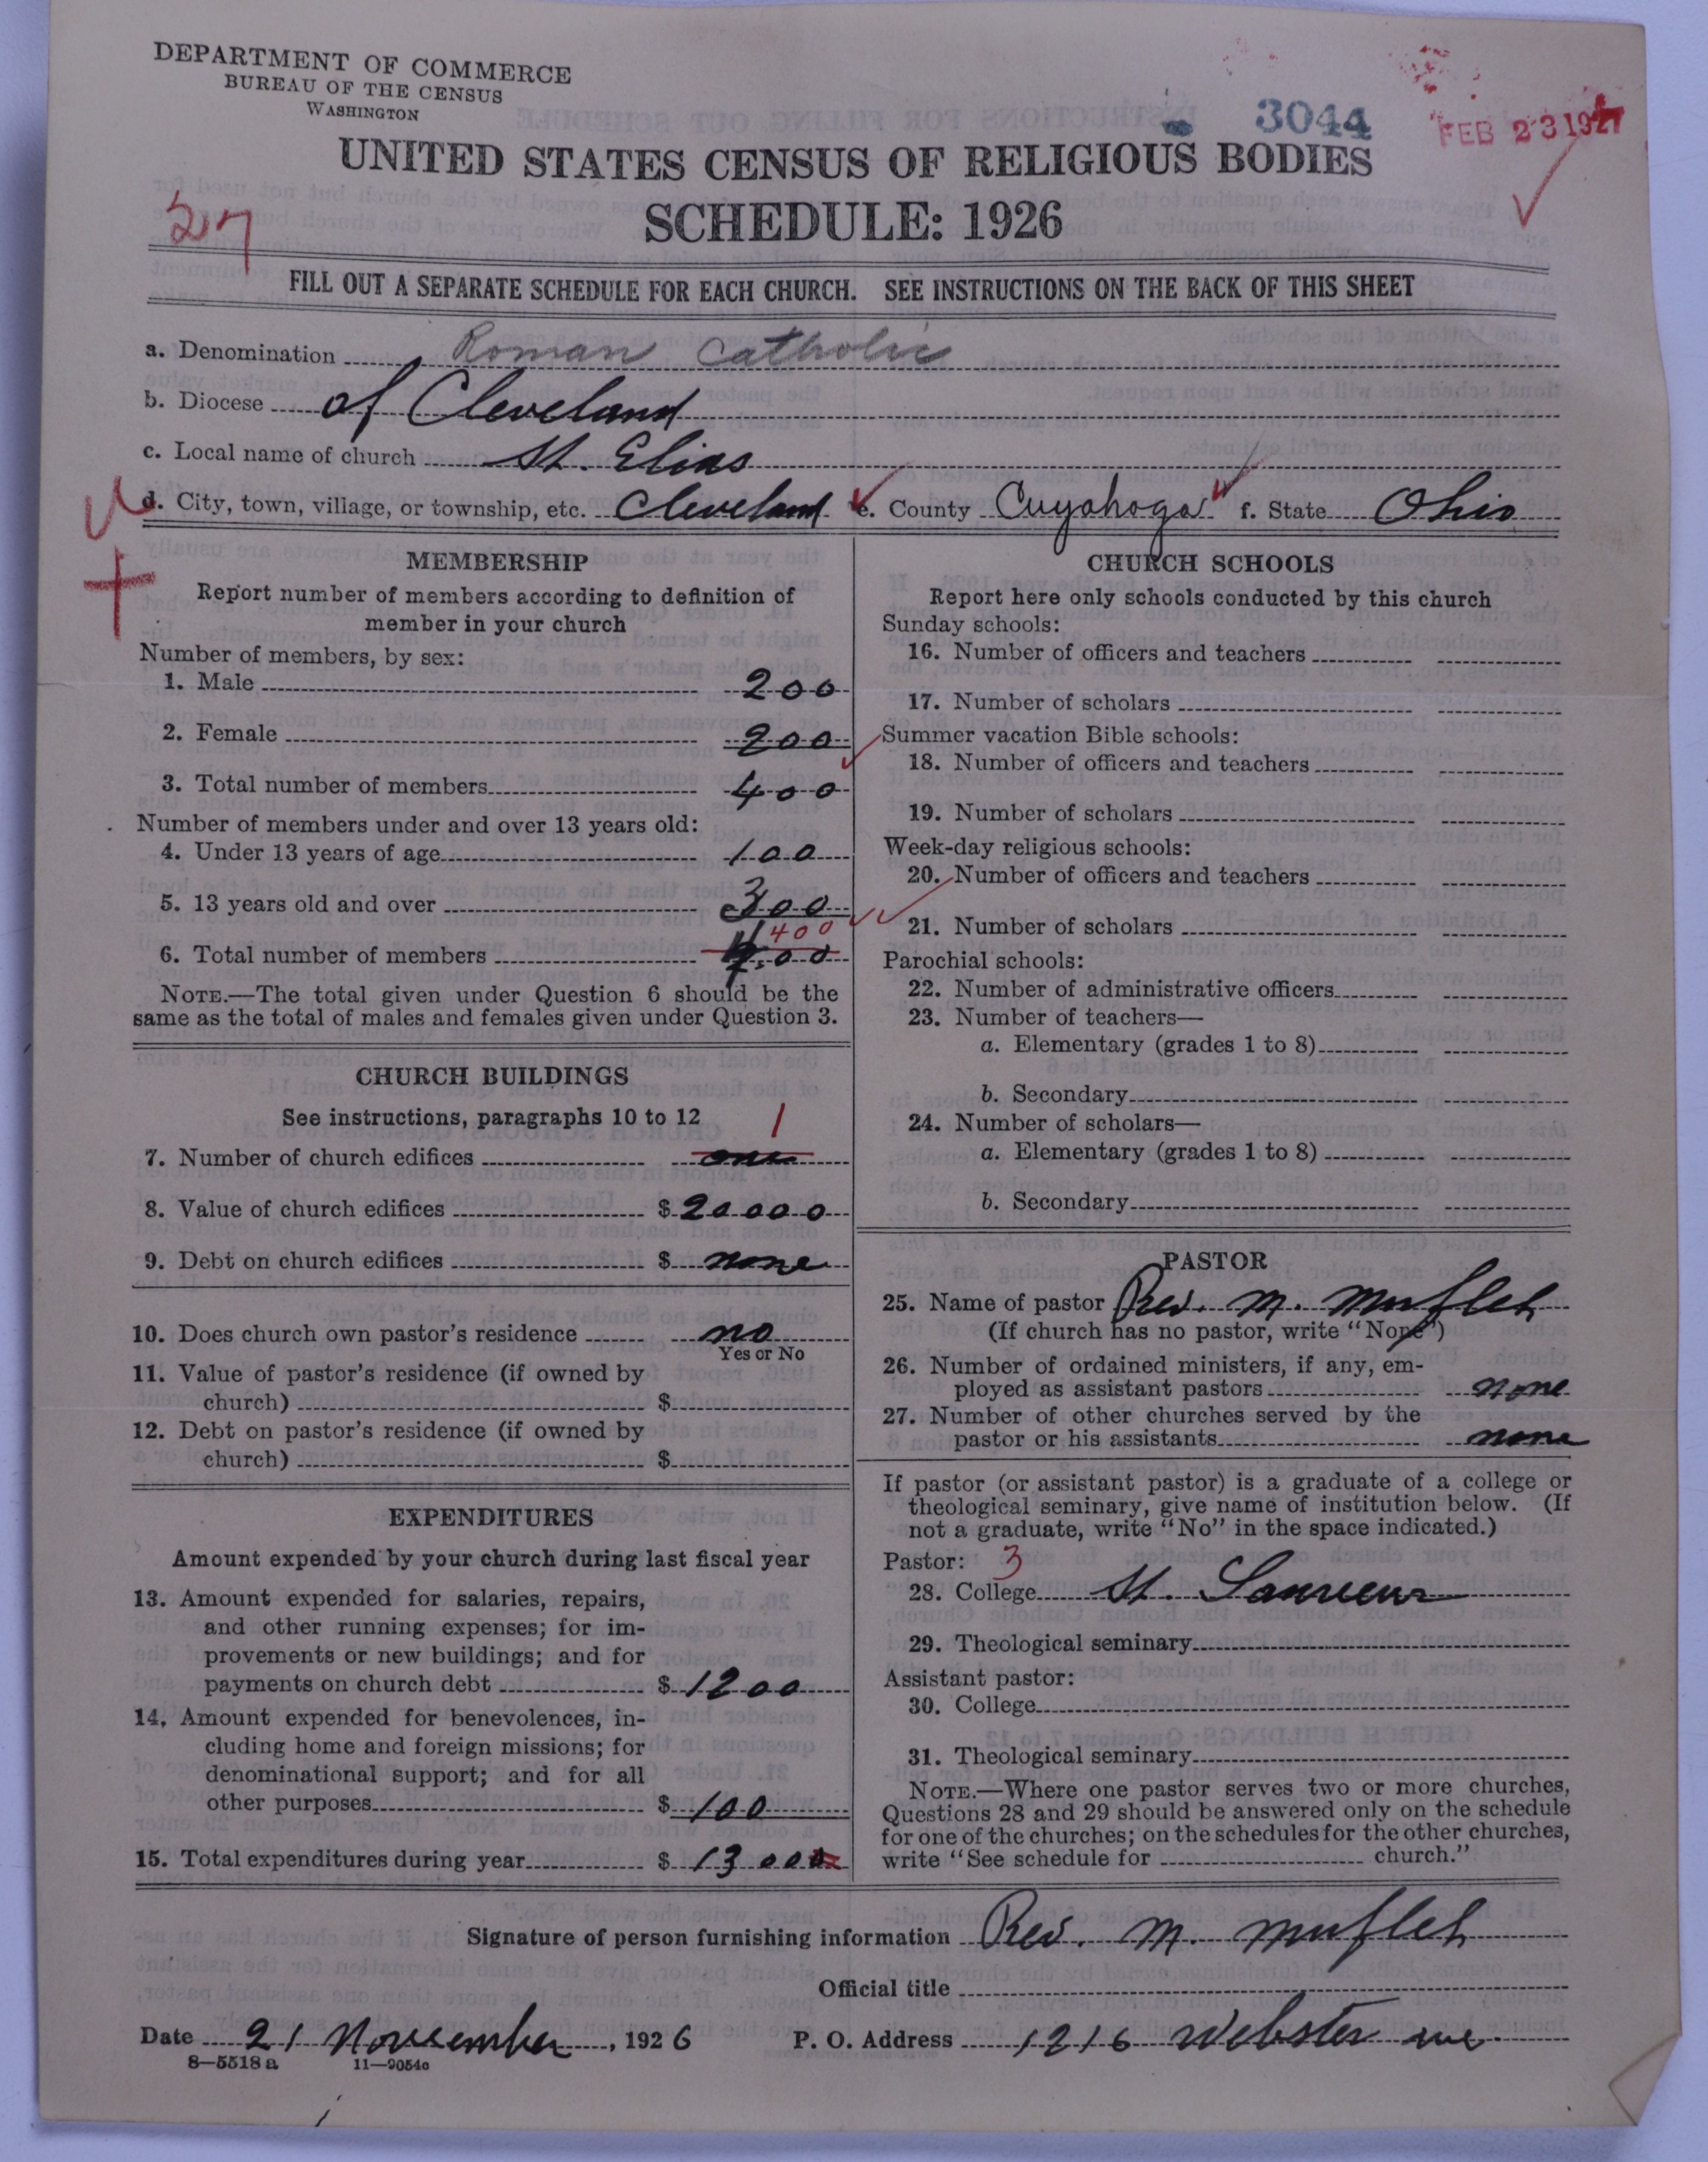 DEPARTMENT OF COMMERCE
BUREAU OF THE CENSUS
WASHINGTON
3044
FEB 23 1927
UNITED STATES CENSUS OF RELIGIOUS BODIES
SCHEDULE: 1926
27
FILL OUT A SEPARATE SCHEDULE FOR EACH CHURCH. SEE INSTRUCTIONS ON THE BACK OF THIS SHEET
a. Denomination Roman Catholic
b. Diocese of Cleveland
c. Local name of church St. Elias
d. City, town, village, or township, etc. Cleveland e. County Cuyahoga f. State Ohio
MEMBERSHIP
Report number of members according to definition of
member in your church
Number of members, by sex:
1. Male 200
2. Female 200
3. Total number of members 400
Number of members under and over 13 years old:
4. Under 13 years of age 100
5. 13 years old and over 300
400
6. Total number of members
NOTE.—The total given under Question 6 should be the
same as the total of males and females given under Question 3.
CHURCH BUILDINGS
See instructions, paragraphs 10 to 12
1
7. Number of church edifices one
8. Value of church edifices $ 20000
9. Debt on church edifices $ none
10. Does church own pastor's residence no
Yes or No
11. Value of pastor's residence (if owned by
church) $
12. Debt on pastor's residence (if owned by
church) $
EXPENDITURES
Amount expended by your church during last fiscal year
13. Amount expended for salaries, repairs,
and other running expenses; for im-
provements or new buildings; and for
payments on church debt $ 1200
14. Amount expended for benevolences, in-
cluding home and foreign missions; for
denominational support; and for all
other purposes $ 100
15. Total expenditures during year $ 1300
CHURCH SCHOOLS
Report here only schools conducted by this church
Sunday schools:
16. Number of officers and teachers
17. Number of scholars
Summer vacation Bible schools:
18. Number of officers and teachers
19. Number of scholars
Week-day religious schools:
20. Number of officers and teachers
21. Number of scholars
Parochial schools:
22. Number of administrative officers
23. Number of teachers—
a. Elementary (grades 1 to 8)
b. Secondary
24. Number of scholars—
a. Elementary (grades 1 to 8)
b. Secondary
PASTOR
25. Name of pastor Rev. M. Mufleh
(If church has no pastor, write "None")
26. Number of ordained ministers, if any, em-
ployed as assistant pastors none
27. Number of other churches served by the
pastor or his assistants none
If pastor (or assistant pastor) is a graduate of a college or
theological seminary, give name of institution below. (If
not a graduate, write "No" in the space indicated.)
Pastor: 3
28. College St.
29. Theological seminary
Assistant pastor:
30. College
31. Theological seminary
NOTE.—Where one pastor serves two or more churches,
Questions 28 and 29 should be answered only on the schedule
for one of the churches; on the schedules for the other churches,
write "See schedule for church."
Signature of person furnishing information Rev. M. Mufleh
Official title
Date 21 November, 1926 P. O. Address 1216 Webster ave.
8—5518a 11—9054c